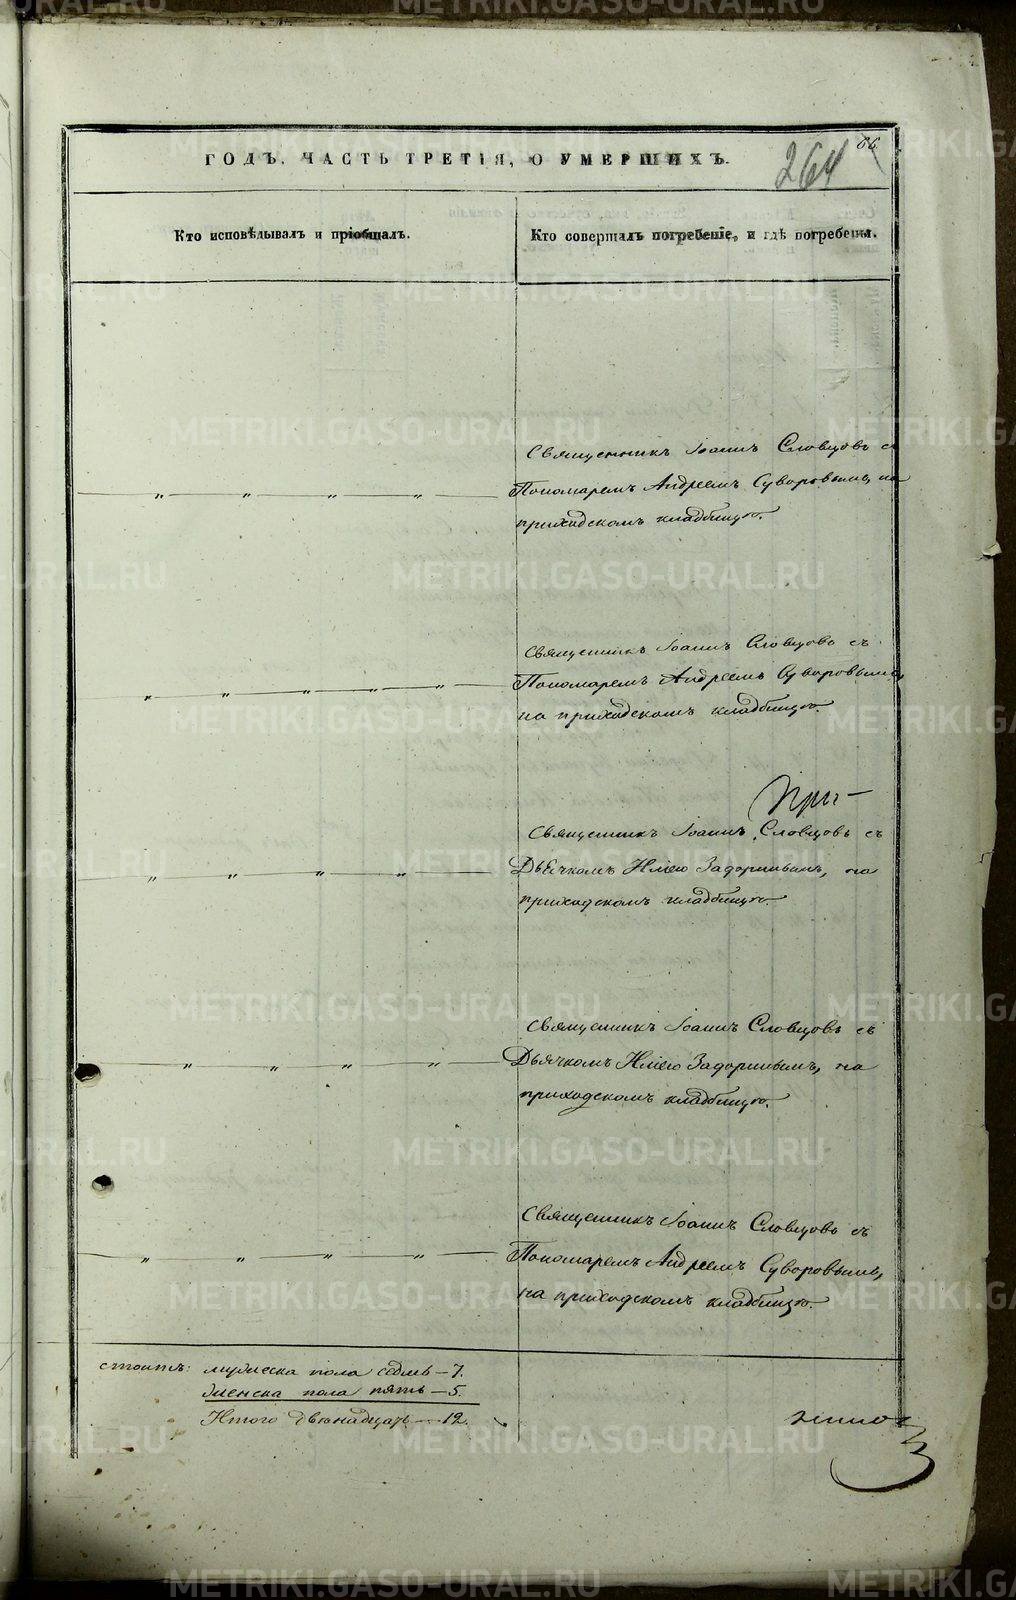 66
264
ГОДЪ. ЧАСТЬ ТРЕТІЯ, О УМЕРШИХЪ.
Кто исповѣдывалъ и пріобщалъ.
Кто совершалъ погребеніе, и гдѣ погребены.
Священникъ Іоаннъ Словцовъ съ
Пономаремъ Андреемъ Суворовымъ, на
приходскомъ кладбищѣ.
Священникъ Іоаннъ Словцовъ съ
Пономаремъ Андреемъ Суворовымъ,
на приходскомъ кладбищѣ.
При-
Священникъ Іоаннъ Словцовъ съ
Дьячкомъ Иліею Задоринымъ, на
приходскомъ кладбищѣ.
Священникъ Іоаннъ Словцовъ съ
Дьячкомъ Иліею Задоринымъ, на
приходскомъ кладбищѣ.
Священникъ Іоаннъ Словцовъ съ
Пономаремъ Андреемъ Суворовымъ,
на приходскомъ кладбищѣ.
мужеска пола седмь - 7.
женска пола пять - 5.
Итого двѣнадцать - 12.
METRIKI.GASO-URAL.RU